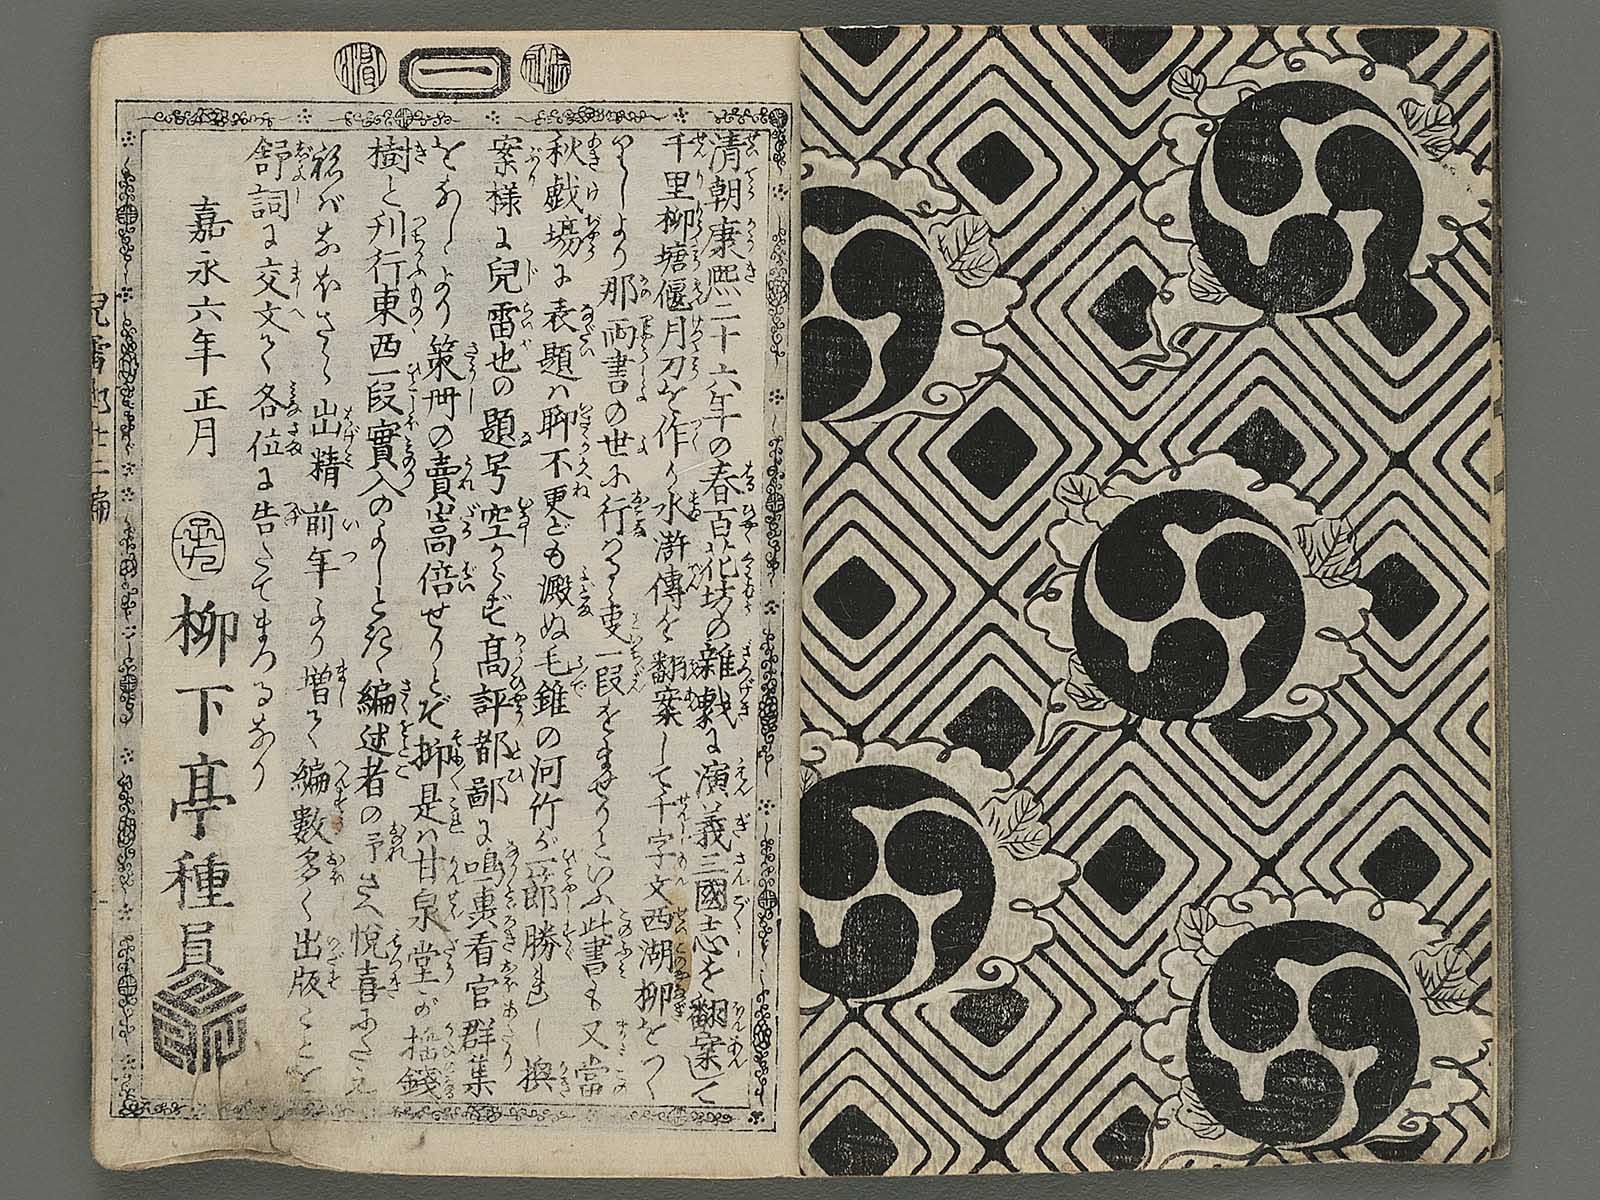 一
清朝康熙二十六年の春百花坊の雑戯に演義三國志を翻案して
千里柳塘偃月刀を作り水滸傳を翻案して千字文西湖柳をつく
りしより那両書の世に行はるゝ一段をませりといふ此書も又當
秋戯場に表題は聊不更ども澱ぬ毛錐の河竹が一郎勝れし
案様に兒雷也の題号空からず高評都鄙に鳴裏看官群集
をなしゝより策冊の賣高倍せりとぞ抑是は甘泉堂が搖錢
樹と刊行東西一段實入のよしときゝ編述者の予さへ悦喜にたえ
ねばなほさら出精前年より増て編數多く出版ことを
舒詞に交文て各位に告たてまつるなり
嘉永六年正月
柳下亭種員